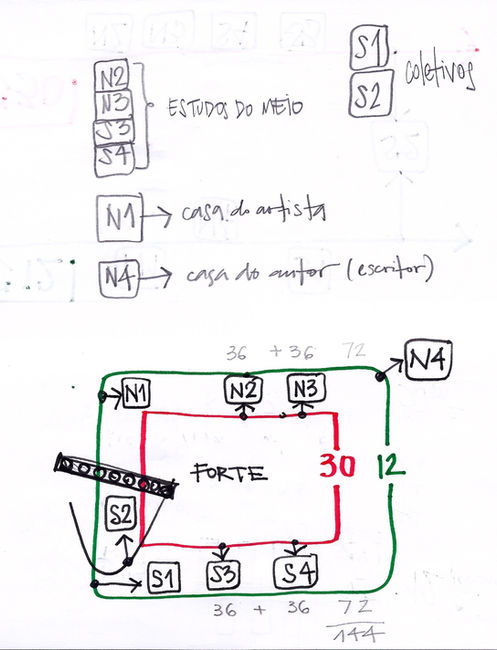 S1
S2
coletivos
N2
N3
S3
S4
ESTUDOS DO MEIO
N1 → casa do artista
N4 → casa do autor (escritor)
36 + 36 72
N4
N1
N2
N3
FORTE
30
12
S2
S1
S3
S4
36 + 36 72
144